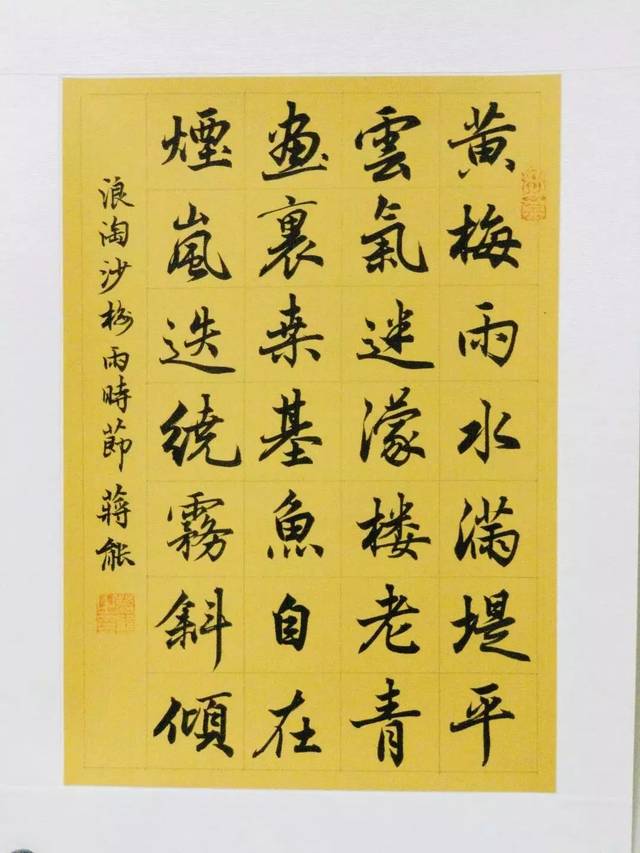 黄梅雨水满堤平
雲氣迷濛楼老青
画裏桑基魚自在
煙嵐迭绕霧斜傾
浪淘沙梅雨時節 蔣能